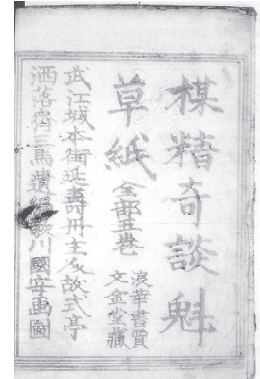 楳精奇談魁
草紙 全部五巻
浪華書賈
文金堂藏
武江城本街延壽丹主人故式亭
洒落齋三馬遺編歌川國安画圖